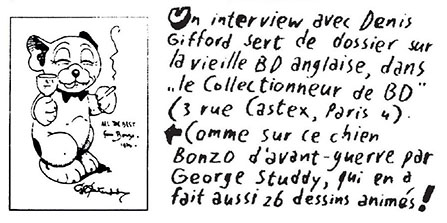 Un interview avec Denis
Gifford sert de dossier sur
la vieille BD anglaise, dans
„le Collectionneur de BD"
(3 rue Castex, Paris 4).
Comme sur ce chien
Bonzo d'avant-guerre par
George Studdy, qui en a
fait aussi 26 dessins animés!
ALL THE BEST
from Bonzo.
GEStuddy